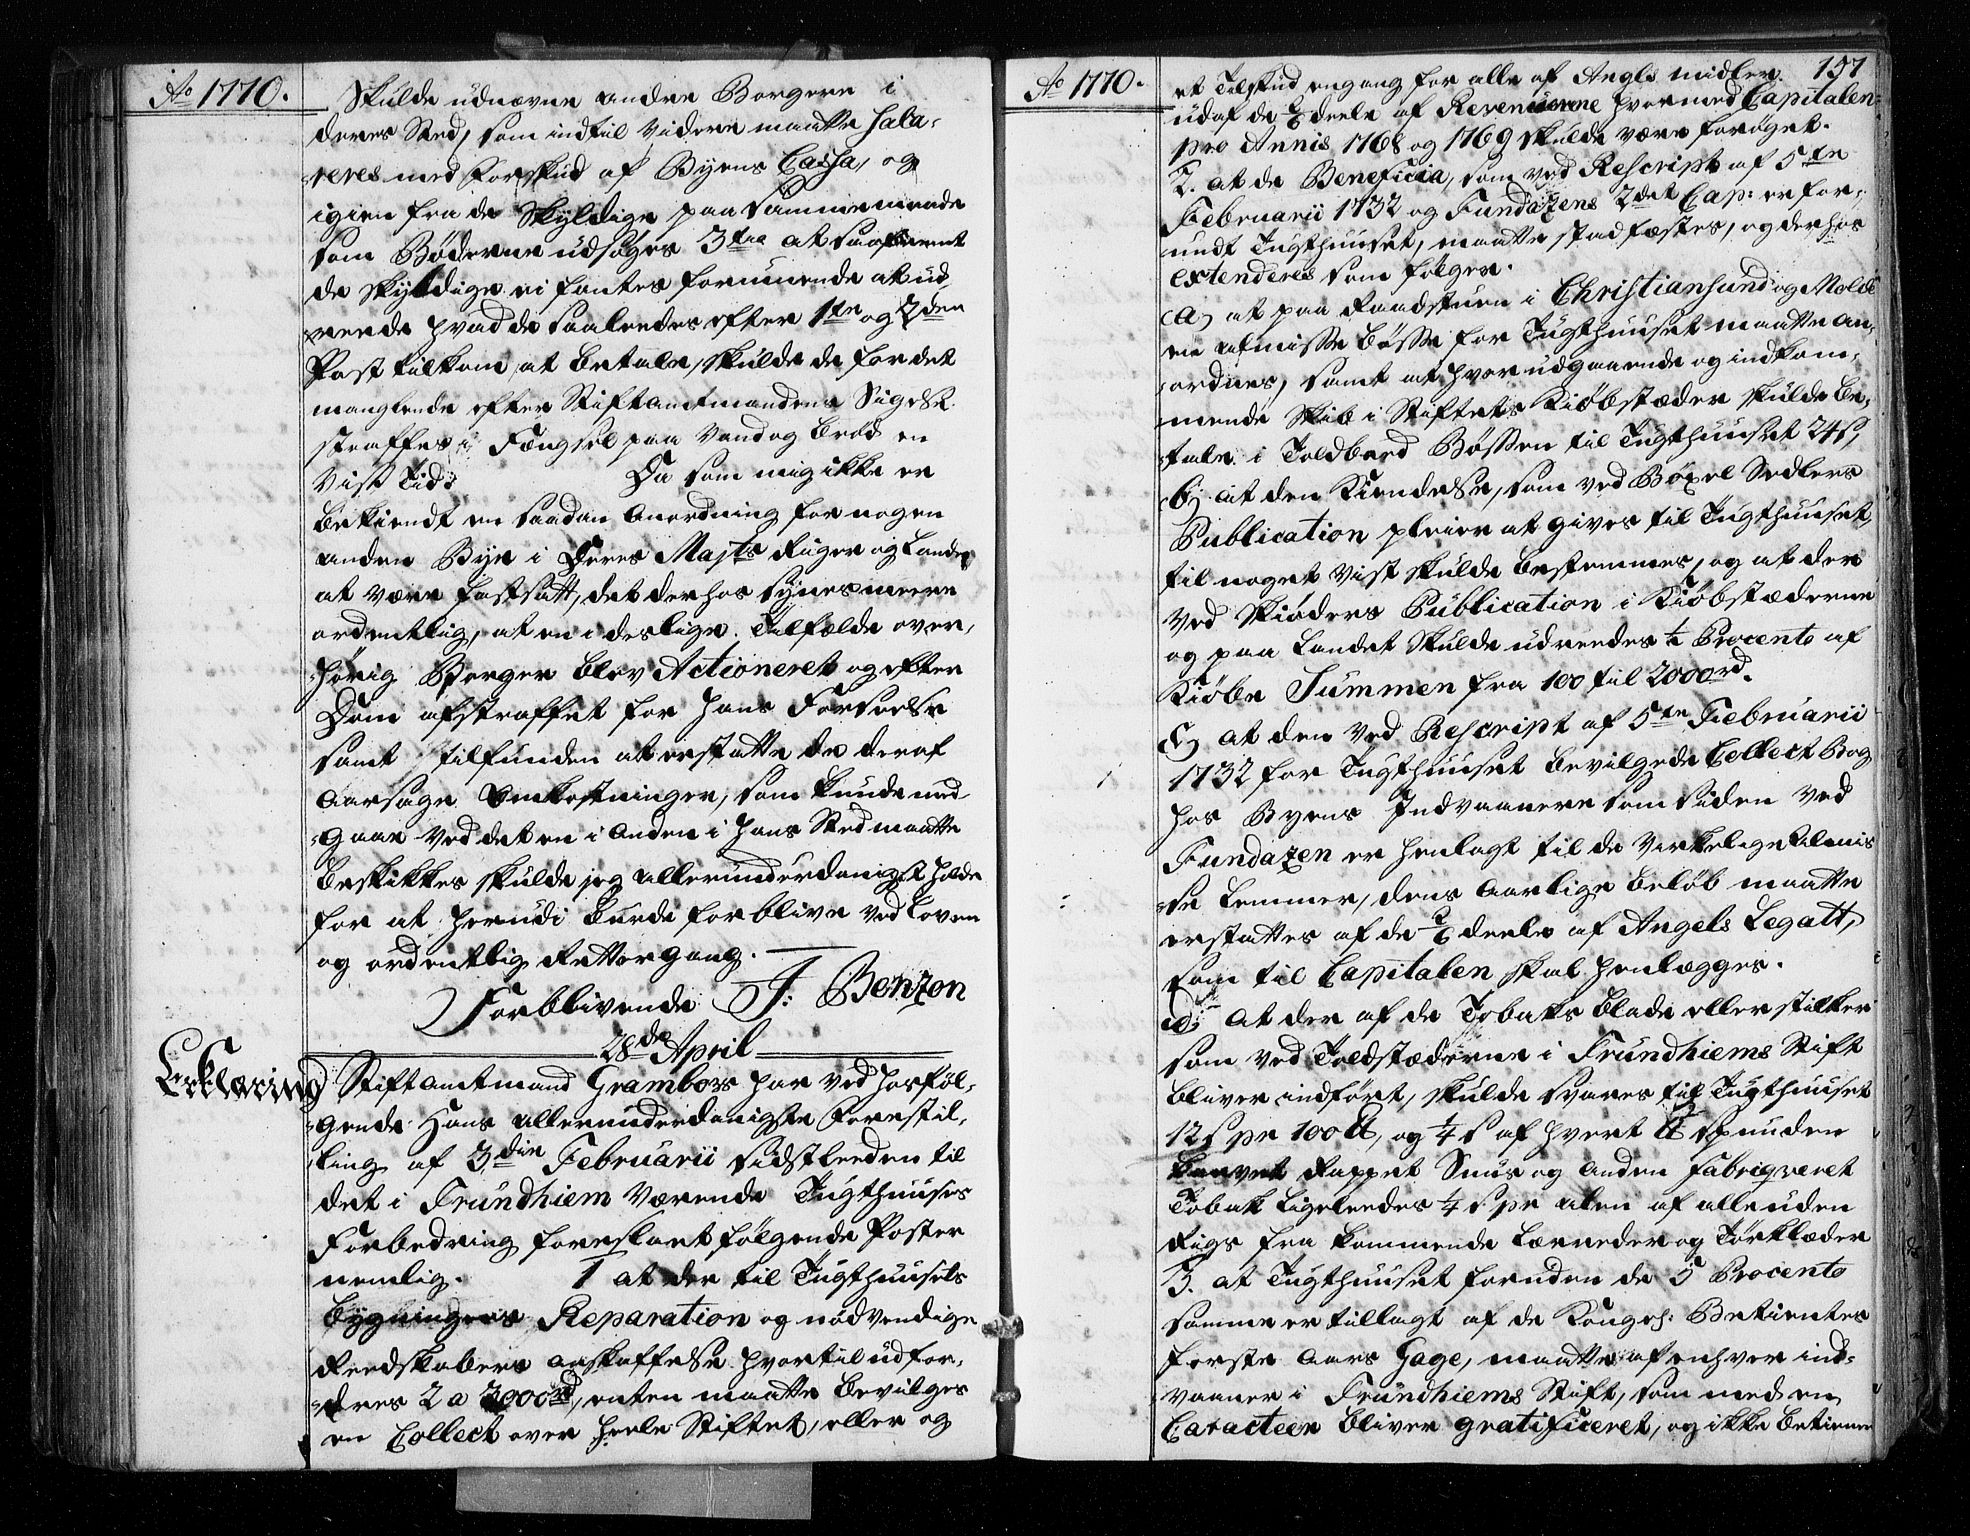 Ao 1770.
Skulde udnævne andre Borgere i
deres Sted, som indtil videre maatte Sala-
reres med Forskud af Byens Cassa, og
igien fra de Skyldige paa samme maade
som Bøderne udsøges 3tie at saafremt
de skyldige ei fantes formuende at ud-
reede hvad de saaledes efter 1te og 2den
Post tilkom at betale, skulde de for det
manglende efter Stiftamtmandens Sigelse
straffes i Fængsel paa Vand og brød en
vis Tid:  Da som mig ikke er
bekiendt en saadan Anordning for nogen
anden Bye i Deres Majts Riger og Lande
at være fastsatt, det derhos synes meere
ordentlig, at en i deslige Tilfælde over-
hørig Borger blev Actioneret og efter
Dom afstraffet for hans Forseelse
samt tilfunden at erstatte de deraf
Aarsage Omkostninger, som kunde med-
gaae ved det en i anden i hans Sted maatte
beskikkes skulde jeg allerunderdanigst holde
for at herudi burde forblive ved Loven
og ordentlig Rettergang.
Forblivende J: Benzon
28de April
Erklæring
Stiftamtmand Grambows har ved hosføl-
gende Hans allerunderdanigste Forestil-
ling af 3die Februarii sidstleeden til
det i Trundhiem værende Tugthuuses
Forbedring foreslaaet følgende Poster
nemlig. 1 at der til Tugthuusets
bygningers Reparation og nødvendige
Reedskabers anskaffelse hvortil udfor-
dres 2 a 3000rd, enten maatte bevilges
en Collect over heele Stiftet, eller og
Ao 1770.
157
et Tilskud engang for alle af Angels midler
udaf de deele af Revenuerne hvormed Capitalen
pro Annis 1768 og 1769 skulde være forøget.
2. at de Beneficia, som ved Rescript af 5te
Februarii 1732 og Fundazens 2det Cap: er for-
undt Tugthuuset, maatte stadfæstes, og derhos
extenderes som følger.
a) at paa Raadstuen i Christiansund og Molde
en almisse bøsse for Tugthuuset maatte an-
ordnes, samt at hver udgaaende og indkom-
mende Skib i Stiftets Kiøbstæder skulde be-
tale i Toldboed Bøssen til Tugthuuset 24 s,
b) at den Kiendelse, som ved Bøxel Sedlers
Publication pleier at gives til Tugthuuset,
til noget vist skulde bestemmes, og at der
ved Skiøders Publication i Kiøbstæderne
og paa Landet skulde udreedes ¼ Procento af
Kiøbe Summen fra 100 til 2000rd.
c) at den ved Rescript af 5te Februarii
1732 for Tugthuuset bevilgede Collect Bog
hos Byens Indvaanere som siden ved
Fundazen er henlagt til de virkelige Almis-
se Lemmer, dens aarlige beløb maatte
erstattes af de deele af Angels Legatt,
som til Capitalen skal henlægges.
d: at der af de Tobaks blade eller stilker
som ved Toldstæderne i Trundhiems Stift
bliver indført, skulde svares til Tugthuuset
12 s pr 100 ℔, og ¼ s af hvert ℔ spunden
kaavet Rappet Snus og anden Fabriqveret
Tobak ligeleedes ¼ s pr alen af alle uden
Rigs fra kommende Lærreder og Tørklæder
3. at Tugthuuset foruden de 5 Procento
samme er tillagt af de Kongel: Betientes
første Aars Gage, maatte af enhver ind-
vaaner i Trundhiems Stift, som med en
Caracteer bliver gratificeret, og ikke betiener